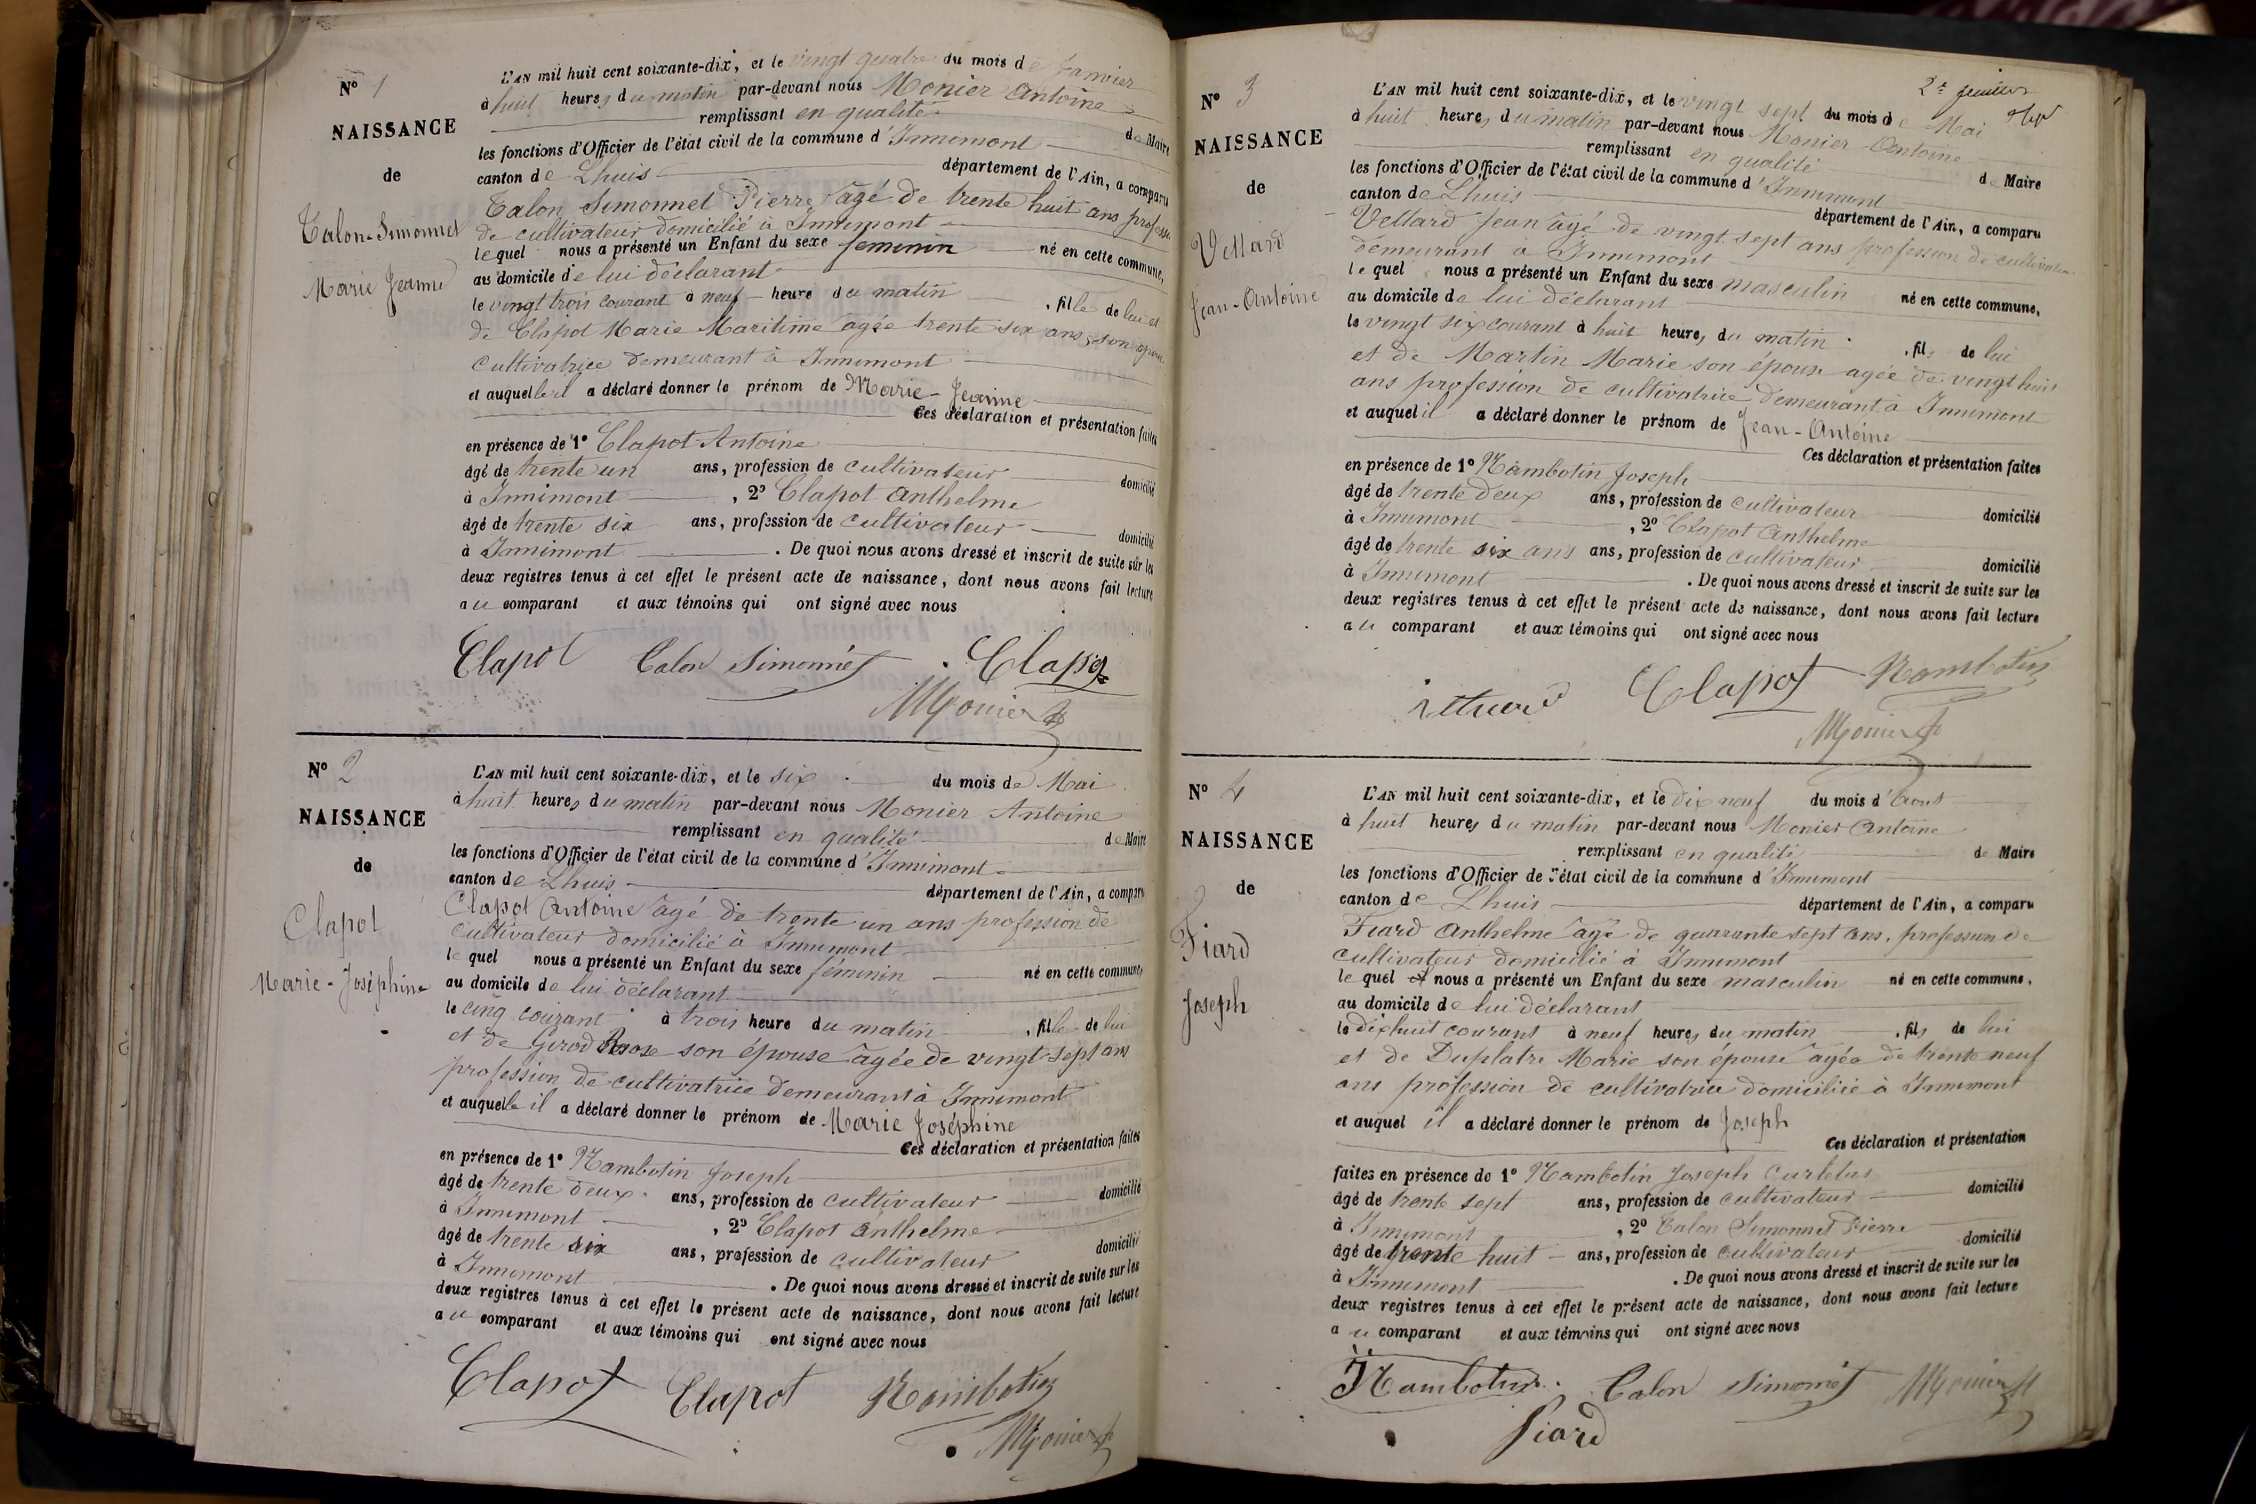 N° 1
NAISSANCE
de
Talon-Simonnet
Marie Jeanne
L'AN mil huit cent soixante-dix, et le vingt quatre du mois de Janvier
à huit heures du matin par-devant nous Monier Antoine
remplissant en qualité de Maire
les fonctions d'Officier de l'état civil de la commune d'Innimont
canton de Lhuis département de l'Ain, a comparu
Talon Simonnet Pierre âgé de trente huit ans profession
de cultivateur domicilié à Innimont
lequel nous a présenté un Enfant du sexe feminin né en cette commune,
au domicile de lui déclarant
le vingt trois courant à neuf heure du matin , fille de lui et
de Clapot Marie Maritime agée trente six ans, son épouse
cultivatrice demeurant à Innimont
et auquelle il a déclaré donner le prénom de Marie-Jeanne
Ces déclaration et présentation faites
en présence de 1° Clapot Antoine
âgé de trente un ans, profession de cultivateur domicilié
à Innimont , 2° Clapot Anthelme
âgé de trente six ans, profession de cultivateur domicilié
à Innimont . De quoi nous avons dressé et inscrit de suite sur les
deux registres tenus à cet effet le présent acte de naissance, dont nous avons fait lecture
au comparant et aux témoins qui ont signé avec nous
Clapot Talon Simonnet Clapot
Monier
N° 2
NAISSANCE
de
Clapot
Marie-Joséphine
L'AN mil huit cent soixante-dix, et le six du mois de Mai
à huit heures du matin par-devant nous Monier Antoine
remplissant en qualité de Maire
les fonctions d'Officier de l'état civil de la commune d'Innimont
canton de Lhuis département de l'Ain, a comparu
Clapot Antoine âgé de trente un ans profession de
cultivateur domicilié à Innimont
le quel nous a présenté un Enfant du sexe féminin né en cette commune,
au domicile de lui déclarant
le cinq courant à trois heure du matin , fille de lui
et de Girod Rose son épouse âgée de vingt-sept ans
profession de cultivatrice demeurant à Innimont
et auquelle il a déclaré donner le prénom de Marie Joséphine
Ces déclaration et présentation faites
en présence de 1° Nambotin Joseph
âgé de trente deux ans, profession de cultivateur domicilié
à Innimont , 2° Clapot Anthelme
âgé de trente six ans, profession de cultivateur domicilié
à Innimont . De quoi nous avons dressé et inscrit de suite sur les
deux registres tenus à cet effet le présent acte de naissance, dont nous avons fait lecture
au comparant et aux témoins qui ont signé avec nous
Clapot Clapot Nambotin
Monier
2e feuillet
N° 3
NAISSANCE
de
Vettard
Jean-Antoine
L'AN mil huit cent soixante-dix, et le vingt sept du mois de Mai
à huit heures du matin par-devant nous Monier Antoine
remplissant en qualité de Maire
les fonctions d'Officier de l'état civil de la commune d'Innimont
canton de Lhuis département de l'Ain, a comparu
Vettard Jean âgé de vingt sept ans profession de cultivateur
demeurant à Innimont
le quel nous a présenté un Enfant du sexe masculin né en cette commune,
au domicile de lui déclarant
le vingt six courant à huit heures du matin , fils de lui
et de Martin Marie son épouse agée de vingt huit
ans profession de cultivatrice demeurant à Innimont
et auquel il a déclaré donner le prénom de Jean-Antoine
Ces déclaration et présentation faites
en présence de 1° Nambotin Joseph
âgé de trente deux ans, profession de cultivateur domicilié
à Innimont , 2° Clapot Anthelme
âgé de trente six ans ans, profession de cultivateur domicilié
à Innimont . De quoi nous avons dressé et inscrit de suite sur les
deux registres tenus à cet effet le présent acte de naissance, dont nous avons fait lecture
au comparant et aux témoins qui ont signé avec nous
Vettard Clapot Nambotin
Monier
N° 4
NAISSANCE
de
Fiard
Joseph
L'AN mil huit cent soixante-dix, et le dix neuf du mois d'Aout
à huit heures du matin par-devant nous Monier Antoine
remplissant en qualité de Maire
les fonctions d'Officier de l'état civil de la commune d'Innimont
canton de Lhuis département de l'Ain, a comparu
Fiard Anthelme âgé de quarante sept ans, profession de
cultivateur domicilié à Innimont
le quel nous a présenté un Enfant du sexe masculin né en cette commune,
au domicile de lui déclarant
le dix huit courant à neuf heures du matin , fils de lui
et de Duplatre Marie son épouse âgée de trente neuf
ans profession de cultivatrice domiciliée à Innimont
et auquel il a déclaré donner le prénom de Joseph
Ces déclaration et présentation
faites en présence de 1° Nambotin Joseph
âgé de trente sept ans, profession de cultivateur domicilié
à Innimont , 2° Talon Simonnet Pierre
âgé de trente huit ans, profession de cultivateur domicilié
à Innimont . De quoi nous avons dressé et inscrit de suite sur les
deux registres tenus à cet effet le présent acte de naissance, dont nous avons fait lecture
au comparant et aux témoins qui ont signé avec nous
Nambotin Talon Simonnet Monier
Fiard